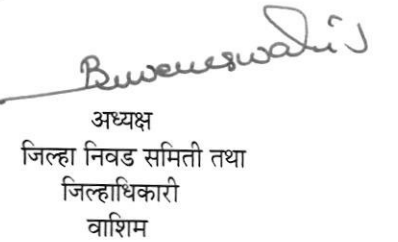 Buveneswari S
अध्यक्ष
जिल्हा निवड समिती तथा
जिल्हाधिकारी
वाशिम